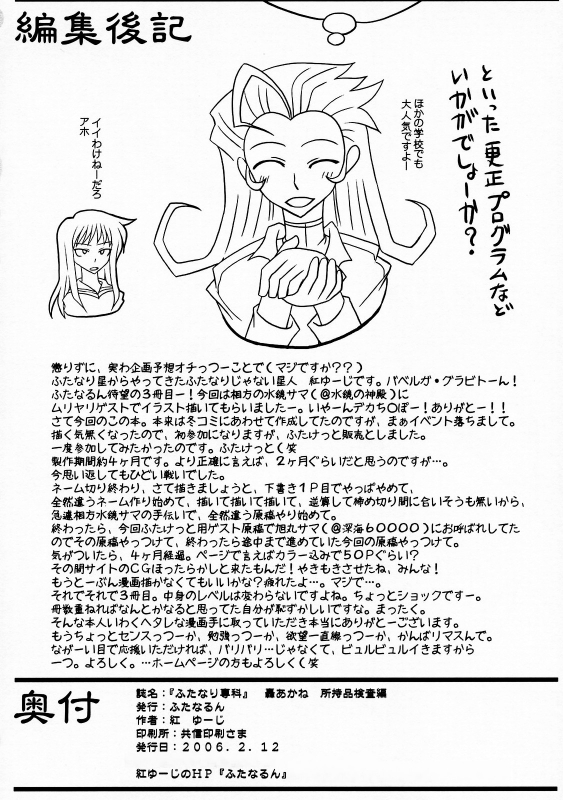 編集後記
といった更正プログラムなど
いかがでしょーか？
ほかの学校でも
大人気ですよー
イイわけねーだろ
アホ
懲りずに、実わ企画予想オチっつーことで（マジですか？？）
ふたなり星からやってきたふたなりじゃない星人　紅ゆーじです。バベルガ・グラビトーん！
ふたなるん待望の３冊目ー！今回は相方の水鏡サマ（@水鏡の神殿）に
ムリヤリゲストでイラスト描いてもらいましたー。いやーんデカち〇ぽー！ありがとー！！
さて今回のこの本。本来は冬コミにあわせて作成してたのですが、まぁイベント落ちまして。
描く気無くなったので、初参加になりますが、ふたけっと販売としました。
一度参加してみたかったのです。ふたけっと（笑
製作期間約４ヶ月です。より正確に言えば、２ヶ月ぐらいだと思うのですが…。
今思い返してもひどい戦いでした。
ネーム切り終わり、さて描きましょうと、下書き１P目でやっぱやめて、
全然違うネーム作り始めて、描いて描いて描いて、逆算して締め切り間に合いそうも無いから、
急遽相方水鏡サマの手伝いで、全然違う原稿やり始めて。
終わったら、今回ふたけっと用ゲスト原稿で旭丸サマ（@深海６００００）にお呼ばれしてた
のでその原稿やっつけて、終わったら途中まで進めていた今回の原稿やっつけて。
気がついたら、４ヶ月経過。ページで言えばカラー込みで５０Pぐらい？
その間サイトのCGほったらかしと来たもんだ！やきもきさせたね、みんな！
もうとーぶん漫画描かなくてもいいかな？疲れたよ…。マジで…。
それでそれで３冊目。中身のレベルは変わらないですよね。ちょっとショックですー。
冊数重ねればなんとかなると思ってた自分が恥ずかしいですな。まったく。
そんな本人いわくヘタレな漫画手に取っていただき本当にありがとーございます。
もうちょっとセンスっつーか、勉強っつーか、欲望一直線っつーか、がんばリマスんで。
ながーい目で応援いただければ、バリバリ…じゃなくて、ビュルビュルイきますから
一つ。よろしく。…ホームページの方もよろしく（笑
奥付
誌名：『ふたなり専科』　轟あかね　所持品検査編
発行：ふたなるん
作者：紅　ゆーじ
印刷所：共信印刷さま
発行日：２００６．２．１２
紅ゆーじのHP『ふたなるん』